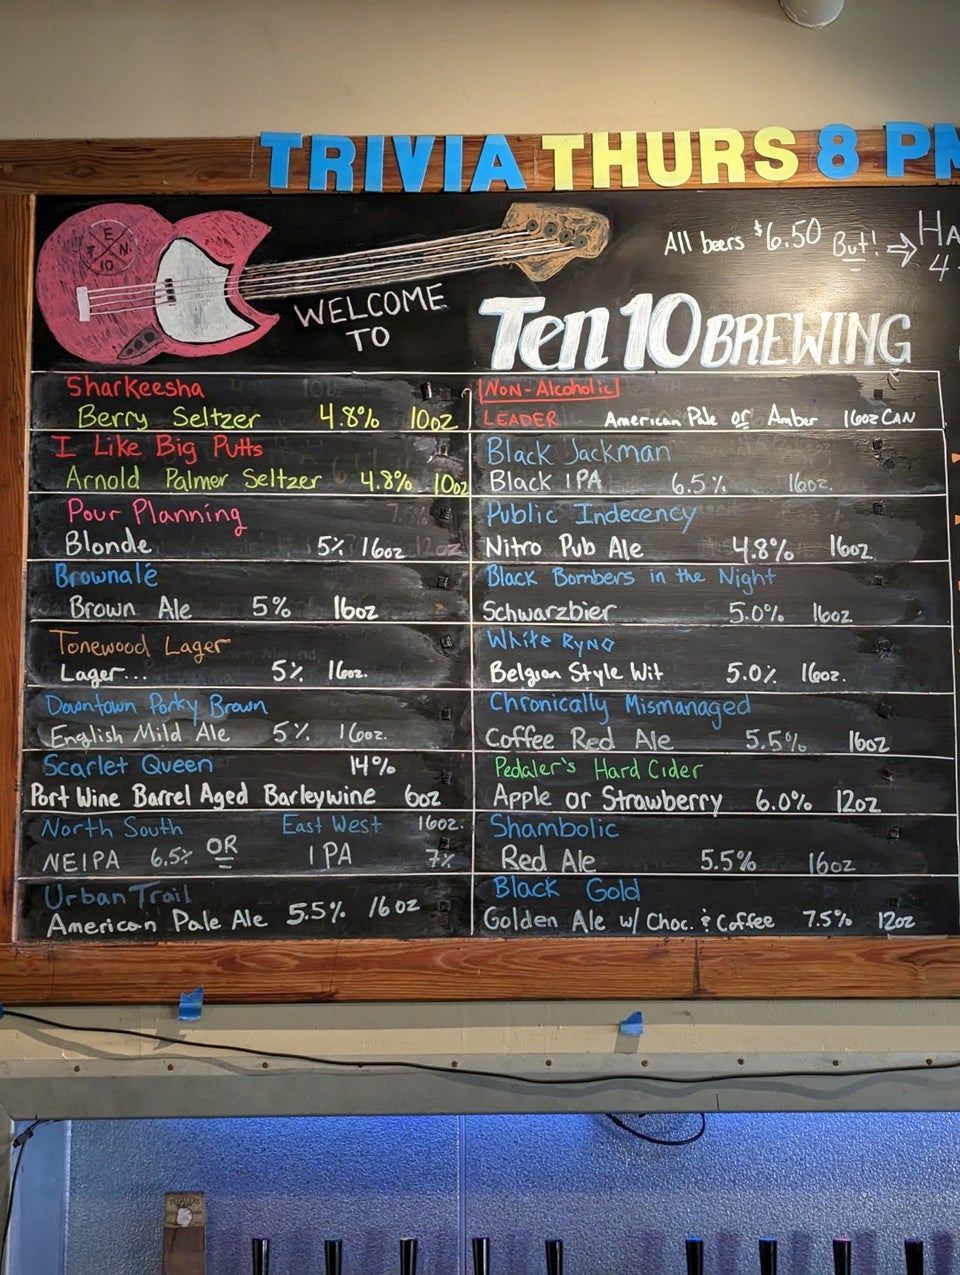 TRIVIA THURS 8 PM
TEN
10
WELCOME
TO
Ten 10 BREWING
All beers $6.50 But! → HA
4
Sharkeesha
Berry Seltzer 4.8% 10oz
I Like Big Putts
Arnold Palmer Seltzer 4.8% 10oz
Pour Planning
Blonde 5% 16oz
Brownalé
Brown Ale 5% 16oz
Tonewood Lager
Lager... 5% 16oz.
Downtown Porky Brown
English Mild Ale 5% 16oz.
Scarlet Queen 14%
Port Wine Barrel Aged Barleywine 6oz
North South East West 16oz.
NEIPA 6.5% OR IPA 7%
Urban Trail
American Pale Ale 5.5% 16oz
Non-Alcoholic
LEADER American Pale or Amber 16oz CAN
Black Jackman
Black IPA 6.5% 16oz.
Public Indecency
Nitro Pub Ale 4.8% 16oz
Black Bombers in the Night
Schwarzbier 5.0% 16oz
White Ryno
Belgian Style Wit 5.0% 16oz.
Chronically Mismanaged
Coffee Red Ale 5.5% 16oz
Pedaler's Hard Cider
Apple or Strawberry 6.0% 12oz
Shambolic
Red Ale 5.5% 16oz
Black Gold
Golden Ale w/ Choc. & Coffee 7.5% 12oz